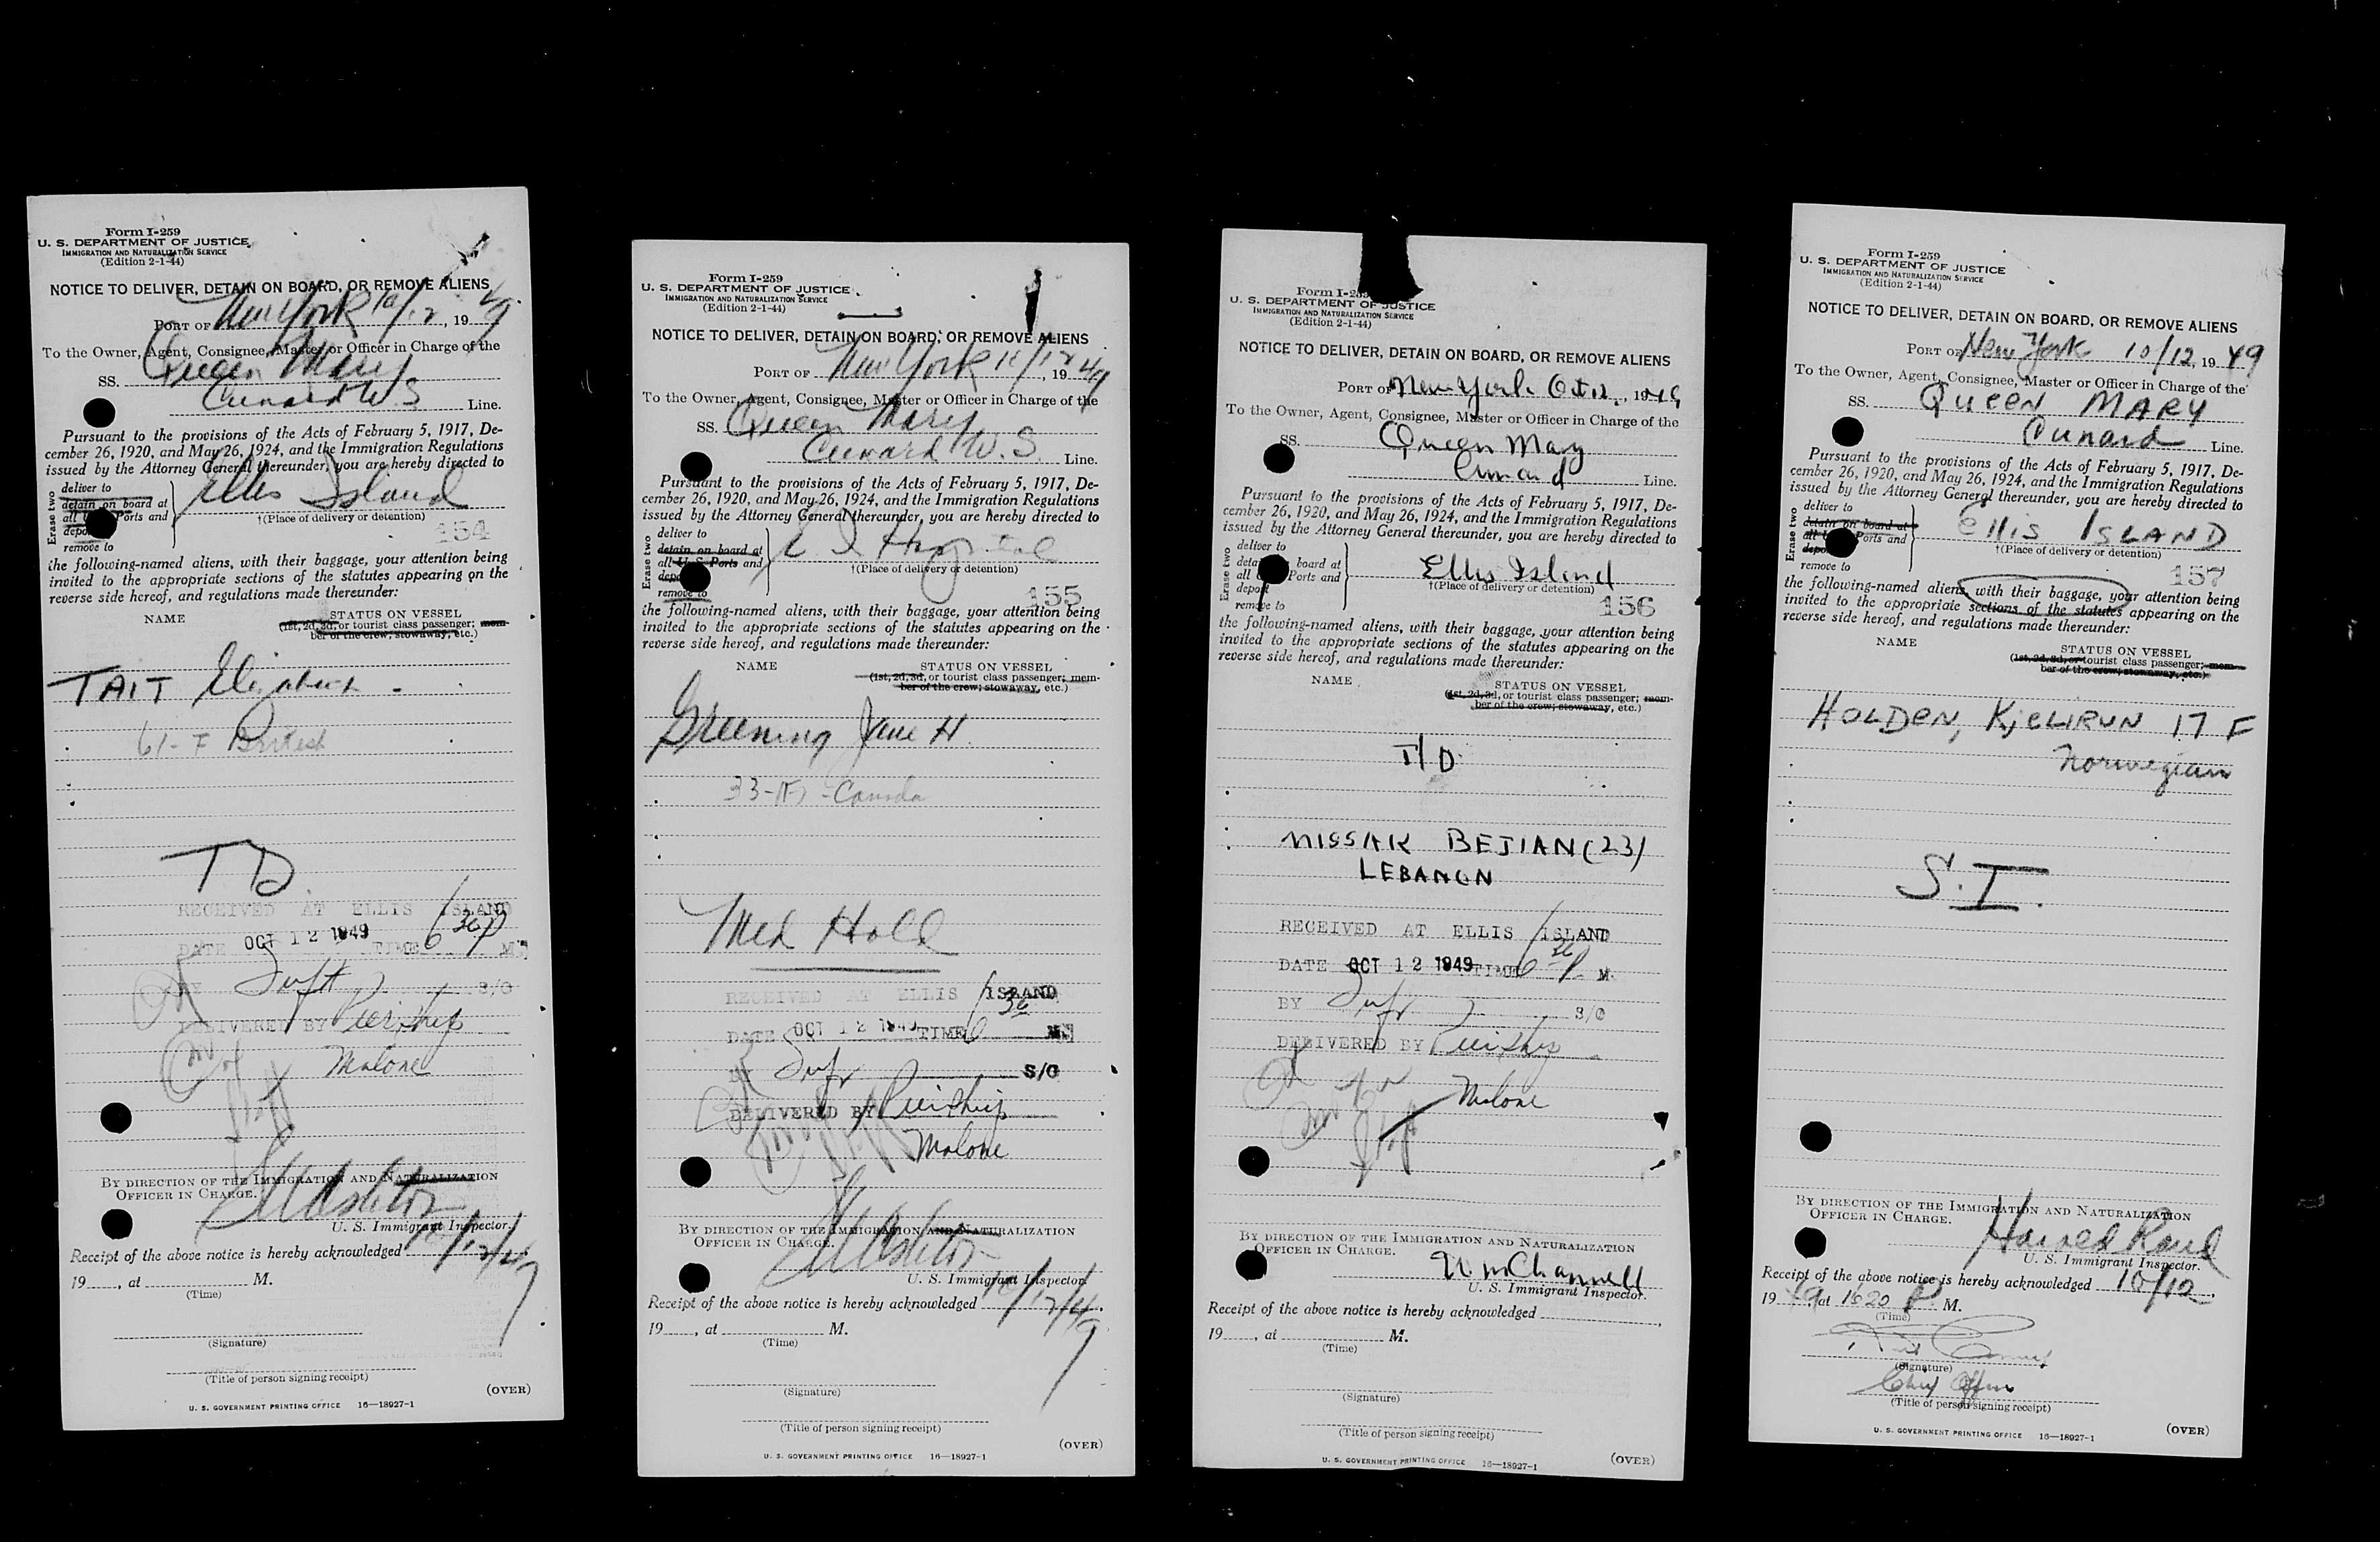 Form I-259
U. S. DEPARTMENT OF JUSTICE
IMMIGRATION AND NATURALIZATION SERVICE
(Edition 2-1-44)
NOTICE TO DELIVER, DETAIN ON BOARD, OR REMOVE ALIENS
PORT OF New York 10/12, 1949
To the Owner, Agent, Consignee, Master or Officer in Charge of the
SS. Queen Mary
Cunard W S Line.
Pursuant to the provisions of the Acts of February 5, 1917, De-
cember 26, 1920, and May 26, 1924, and the Immigration Regulations
issued by the Attorney General thereunder, you are hereby directed to
Erase two
deliver to
detain on board at
all U Ports and
depo
remove to
Ellis Island
†(Place of delivery or detention)
154
the following-named aliens, with their baggage, your attention being
invited to the appropriate sections of the statutes appearing on the
reverse side hereof, and regulations made thereunder:
NAME STATUS ON VESSEL
(1st, 2d, 3d, or tourist class passenger; mem-
ber of the crew; stowaway, etc.)
TAIT Elizabeth
61-F British
TD
RECEIVED AT ELLIS ISLAND
DATE OCT 12 1949 TIME 6 30 P M.
BY S/O
DELIVERED BY
Malone
BY DIRECTION OF THE IMMIGRATION AND NATURALIZATION
OFFICER IN CHARGE.
U. S. Immigrant Inspector.
Receipt of the above notice is hereby acknowledged 10/12/49
19___, at ___ M.
(Time)
(Signature)
(Title of person signing receipt)
(OVER)
U. S. GOVERNMENT PRINTING OFFICE 16—18927-1
Form I-259
U. S. DEPARTMENT OF JUSTICE
IMMIGRATION AND NATURALIZATION SERVICE
(Edition 2-1-44)
NOTICE TO DELIVER, DETAIN ON BOARD, OR REMOVE ALIENS
PORT OF New York 10/12, 1949
To the Owner, Agent, Consignee, Master or Officer in Charge of the
SS. Queen Mary
Cunard W. S. Line.
Pursuant to the provisions of the Acts of February 5, 1917, De-
cember 26, 1920, and May 26, 1924, and the Immigration Regulations
issued by the Attorney General thereunder, you are hereby directed to
Erase two
deliver to
detain on board at
all U. S. Ports and
depo
remove to
E I Hospital
†(Place of delivery or detention)
155
the following-named aliens, with their baggage, your attention being
invited to the appropriate sections of the statutes appearing on the
reverse side hereof, and regulations made thereunder:
NAME STATUS ON VESSEL
(1st, 2d, 3d, or tourist class passenger; mem-
ber of the crew; stowaway, etc.)
Greening Jane H.
33-(F)-Canada
Med Hold
RECEIVED AT ELLIS ISLAND
DATE OCT 12 1949 TIME 6 30 M.
BY S/O
DELIVERED BY
Malone
BY DIRECTION OF THE IMMIGRATION AND NATURALIZATION
OFFICER IN CHARGE.
U. S. Immigrant Inspector
Receipt of the above notice is hereby acknowledged 10/12/49
19___, at ___ M.
(Time)
(Signature)
(Title of person signing receipt)
(OVER)
U. S. GOVERNMENT PRINTING OFFICE 16—18927-1
Form I-259
U. S. DEPARTMENT OF JUSTICE
IMMIGRATION AND NATURALIZATION SERVICE
(Edition 2-1-44)
NOTICE TO DELIVER, DETAIN ON BOARD, OR REMOVE ALIENS
PORT OF New York Oct 12, 1949
To the Owner, Agent, Consignee, Master or Officer in Charge of the
SS. Queen Mary
Cunard Line.
Pursuant to the provisions of the Acts of February 5, 1917, De-
cember 26, 1920, and May 26, 1924, and the Immigration Regulations
issued by the Attorney General thereunder, you are hereby directed to
Erase two
deliver to
deta board at
all U Ports and
deport
remove to
Ellis Island
†(Place of delivery or detention)
156
the following-named aliens, with their baggage, your attention being
invited to the appropriate sections of the statutes appearing on the
reverse side hereof, and regulations made thereunder:
NAME STATUS ON VESSEL
(1st, 2d, 3d, or tourist class passenger; mem-
ber of the crew; stowaway, etc.)
T/D
NISSAK BEJIAN (23)
LEBANON
RECEIVED AT ELLIS ISLAND
DATE OCT 12 1949 TIME 6 30 P M.
BY S/O
DELIVERED BY
Malone
BY DIRECTION OF THE IMMIGRATION AND NATURALIZATION
OFFICER IN CHARGE.
U. S. Immigrant Inspector.
Receipt of the above notice is hereby acknowledged
19___, at ___ M.
(Time)
(Signature)
(Title of person signing receipt)
(OVER)
U. S. GOVERNMENT PRINTING OFFICE 16—18927-1
Form I-259
U. S. DEPARTMENT OF JUSTICE
IMMIGRATION AND NATURALIZATION SERVICE
(Edition 2-1-44)
NOTICE TO DELIVER, DETAIN ON BOARD, OR REMOVE ALIENS
PORT OF New York 10/12, 1949
To the Owner, Agent, Consignee, Master or Officer in Charge of the
SS. QUEEN MARY
Cunard Line.
Pursuant to the provisions of the Acts of February 5, 1917, De-
cember 26, 1920, and May 26, 1924, and the Immigration Regulations
issued by the Attorney General thereunder, you are hereby directed to
Erase two
deliver to
detain on board at
all U Ports and
depo
remove to
Ellis ISLAND
†(Place of delivery or detention)
157
the following-named aliens, with their baggage, your attention being
invited to the appropriate sections of the statutes appearing on the
reverse side hereof, and regulations made thereunder:
NAME STATUS ON VESSEL
(1st, 2d, 3d, or tourist class passenger; mem-
ber of the crew; stowaway, etc.)
HOLDEN, KJELLRUN 17 F
Norwegian
S.I.
BY DIRECTION OF THE IMMIGRATION AND NATURALIZATION
OFFICER IN CHARGE.
U. S. Immigrant Inspector.
Receipt of the above notice is hereby acknowledged 10/12
1949, at 1620 P. M.
(Time)
(Signature)
Chief Officer
(Title of person signing receipt)
(OVER)
U. S. GOVERNMENT PRINTING OFFICE 16—18927-1